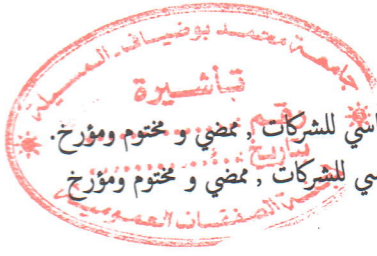 جامعة محمد بوضياف المسيلة
تأشيرة
رقم
للشركات , ممضي و مختوم ومؤرخ.
بتاريخ
للشركات , ممضي و مختوم ومؤرخ
الصفقات العمومية